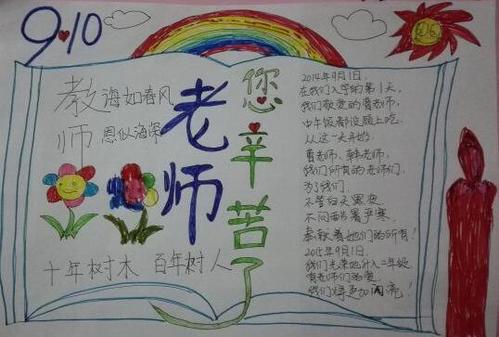 9.10
教诲如春风
师恩似海深
老师
您辛苦了
十年树木 百年树人
2014年9月1日,
在我们入学的第1天,
我们敬爱的曹老师,
中午饭都没顾上吃,
从这一天开始,
曹老师,韩老师,
我们所有的老师们,
为了我们,
不管白天黑夜
不问酷暑严寒,
奉献着她们的所有!
2015年9月1日,
我们光荣地升入二年级
有老师们的爱
我们将更加闪亮!